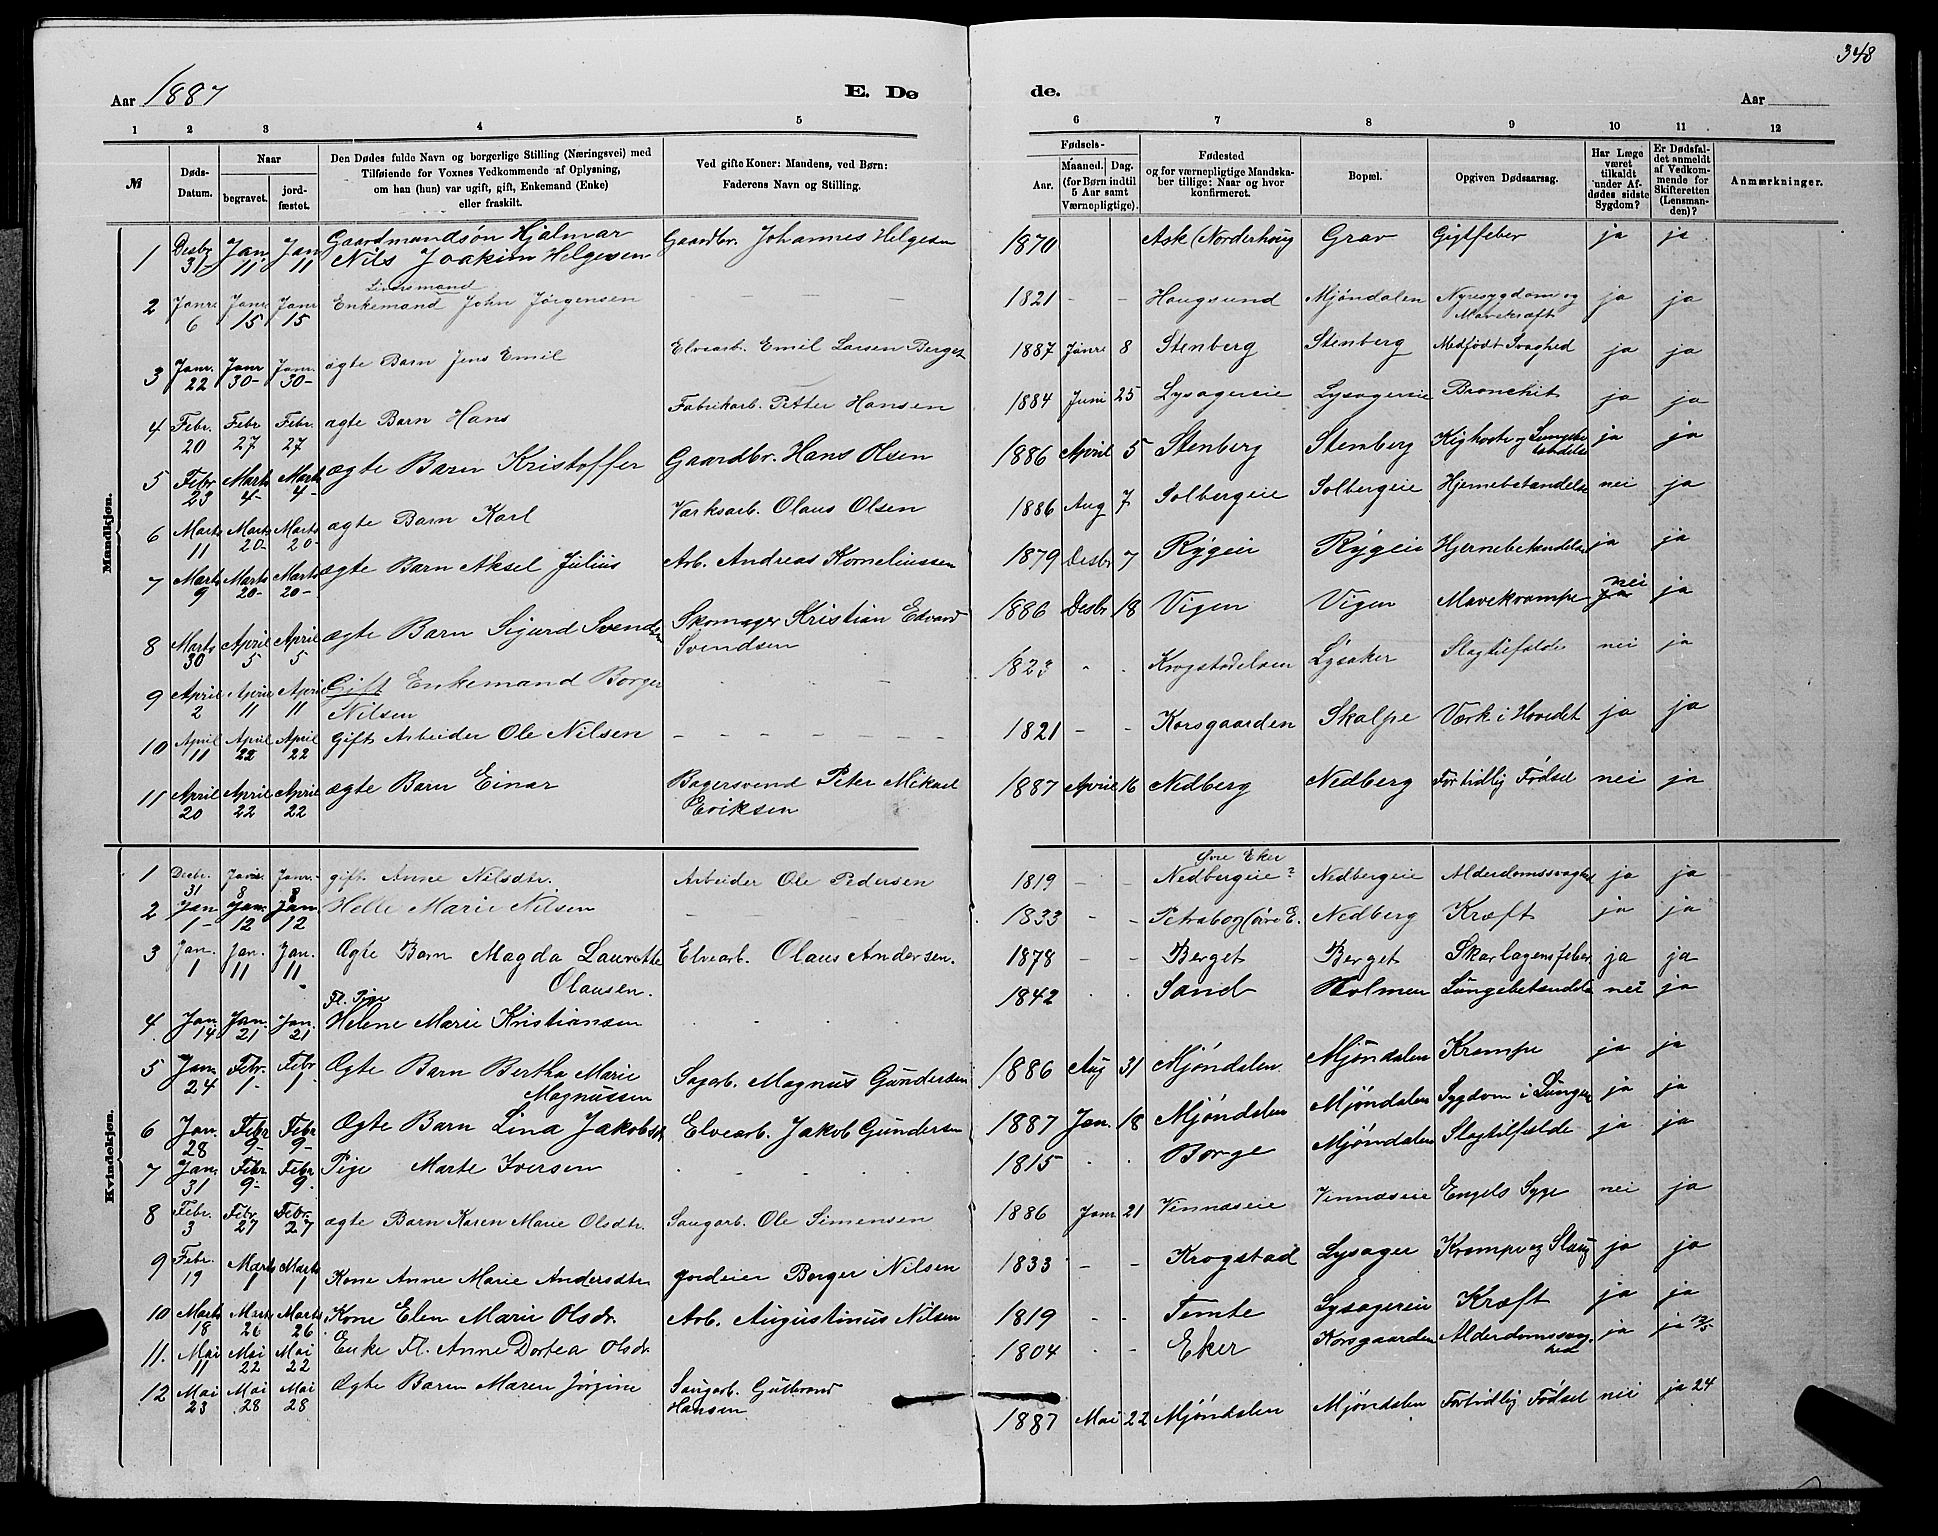 348
Aar 1887 E. De de. Aar
1 2 3 4 5 6 7 8 9 10 11 12
№
Døds-Datum.
Naar
begravet.
jord-fæstet.
Den Dødes fulde Navn og borgerlige Stilling (Næringsvei) med
Tilføiende for Voxnes Vedkommende af Oplysning,
om han (hun) var ugift, gift, Enkemand (Enke)
eller fraskilt.
Ved gifte Koner: Mandens, ved Børn:
Faderens Navn og Stilling.
Fødsels-
Aar.
Maaned. Dag.
(for Børn indtil
5 Aar samt
Værnepligtige).
Fødested
og for værnepligtige Mandska-
ber tillige: Naar og hvor
konfirmeret.
Bopæl.
Opgiven Dødsaarsag.
Har Læge
været
tilkaldt
under Af-
dødes sidste
Sygdom?
Er Dødsfal-
det anmeldt
af Vedkom-
mende for
Skifteretten
(Lensman-
den)?
Anmærkninger.
Mandkjøn.
1 Desbr 31- Jan. 11 Jan 11 Gaardmandsøn Hjalmar Nils Joakim Helgesen Gaardbr. Johannes Helgesen 1870 Ask (Norderhoug Grav Gigtfeber ja ja
2 Janr. 6 Janr 15 Janr 15 Enkemand John Jørgensen — — — 1821 - - Hougsund Mjøndalen Nyresygdom og Mavekræft ja ja
3 Janr. 22 Janr 30- Janr. 30- ægte Barn Jens Emil Elvearb. Emil Larsen Berget 1887 Janr 8 Stenberg Stenberg Medfødt Svaghed ja ja
4 Febr. 20 Febr 27 Febr. 27 ægte Barn Hans Fabrikarb. Petter Hansen 1884 Juni 25 Lysagereie Lysagereie Bronchit ja ja
5 Febr 23 Marts 4- Marts 4- ægte Barn Kristoffer Gaardbr. Hans Olsen 1886 April 5 Stenberg Stenberg Kighoste og Lungebetændelse ja ja
6 Marts 11 Marts 20- Marts 20- ægte Barn Karl Værksarb. Olaus Olsen 1886 Aug 7 Solbergeie Solbergeie Hjernebetændelse nei ja
7 Marts 9 Marts 20- Marts 20- ægte Barn Aksel Julius Arb. Andreas Korneliussen 1879 Desbr 7 Rygeie Rygeie Hjernebetændelse ja ja
8 Marts 30 April 5 April 5 ægte Barn Sigurd Svendsen Skomager Kristian Edvard Svendsen 1886 Desbr 18 Vigen Vigen Mavekrampe nei ja
9 April 2 April 11 April 11 Gift Enkemand Borger Nilsen 1823 - - Krogstadelven Lysaker Slagtilfælde nei ja
10 April 11 April 22 April 22 Gift Arbeider Ole Nilsen — — — 1821 - - Korsgaarden Skalpe Værk i Hovedet ja ja
11 April 20 April 22 April 22 ægte Barn Einar Bagersvend Peter Mikael Eriksen 1887 April 16 Nedberg Nedberg For tidlig Fødsel nei ja
Kvindekjøn.
1 Decbr. 31 Janr. 8 Janr. 8 gift Anne Nilsdtr. Arbeider Ole Pedersen 1819 - - Øvre Eker Nedbergeie? Nedbergeie Alderdomssvaghed ja ja
2 Jan 1- Jan. 12 Jan 12 Helle Marie Nilsen 1833 - - (øvre E. Nedberg Kræft ja ja
3 Jan. 1 Jan. 11 Jan. 11 Ægte Barn Magda Laurette Olausen. Elvearb. Olaus Andersen. 1878 - - Berget Berget Skarlagensfeber ja ja
4 Jan. 14 Jan. 21 Jan. 21 Fl. Pige Helene Marie Kristiansen 1842 . . Sand Holmen Lungebetændelse nei ja
5 Jan. 24 Febr. 1- Febr 1 Ægte Barn Bertha Marie Magnussen Sagarb. Magnus Gundersen 1886 Aug 31 Mjøndalen Mjøndalen Krampe ja ja
6 Jan. 28 Febr 9- Febr 9- Ægte Barn Lina Jakobsdt. Elvearb. Jakob Gundersen 1887 Jan. 18 Mjøndalen Mjøndalen Sygdom i Lungen ja ja
7 Jan. 31 Febr 9- Febr 9. Pige Marte Iversen 1815 . . Borge Mjøndalen Slagtilfælde ja ja
8 Febr. 3 Febr 27 Febr. 27 ægte Barn Karen Marie Olsdtr. Saugarb. Ole Simensen 1886 Janr 21 Vinnæseie Vinnæseie Engels Syge nei ja
9 Febr. 19 Marts 1 Marts 1 Kone Anne Marie Andersdtr. Gordeier Borger Nilsen 1833 - - Krogstad Lysager Krampe og Slag ja ja
10 Marts 18 Marts 26 Marts 26 Kone Elen Marie Olsdr. Arb. Augustinus Nilsen 1819 - - Temte Lysagereie Kræft ja ja
11. Mai 11 Mai 22 Mai 22 Enke Fl. Anne Dortea Olsdr. 1804 . - Eker Korsgaarden Alderdomssvaghed ja ja 12/5
12 Mai 23 Mai 28 Mai 28 Ægte Baren Maren Jørgine Saugarb. Gulbrand Hansen 1887 Mai 22 Mjøndalen Mjøndalen Fortidlig Fødsel nei ja 24